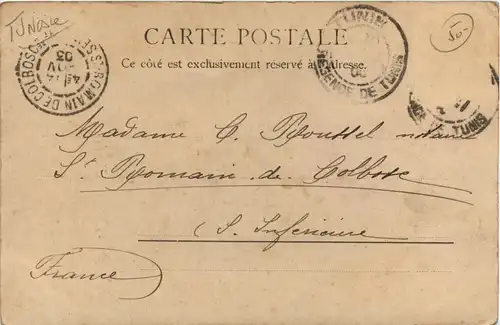 Tunisie
50-
CARTE POSTALE
Ce côté est exclusivement réservé à l'adresse.
ST ROMAIN DE COLBOSC
03
REGENCE DE TUNIS
TUNIS
Madame C. Roussel notaire
St Romain de Colbosc
(S. Inférieure
France)